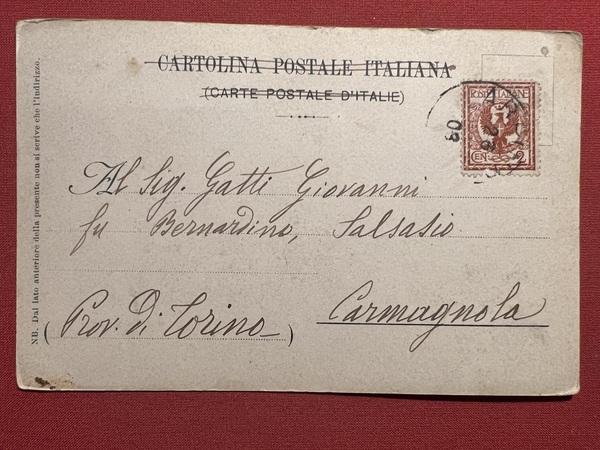 CARTOLINA POSTALE ITALIANA
(CARTE POSTALE D'ITALIE)
Al Sig. Gatti Giovanni
fu Bernardino, Salsasio
Carmagnola
(Prov. di Torino)
NB. Dal lato anteriore della presente non si scrive che l'indirizzo.
POSTE ITALIANE
CENT. 2
03